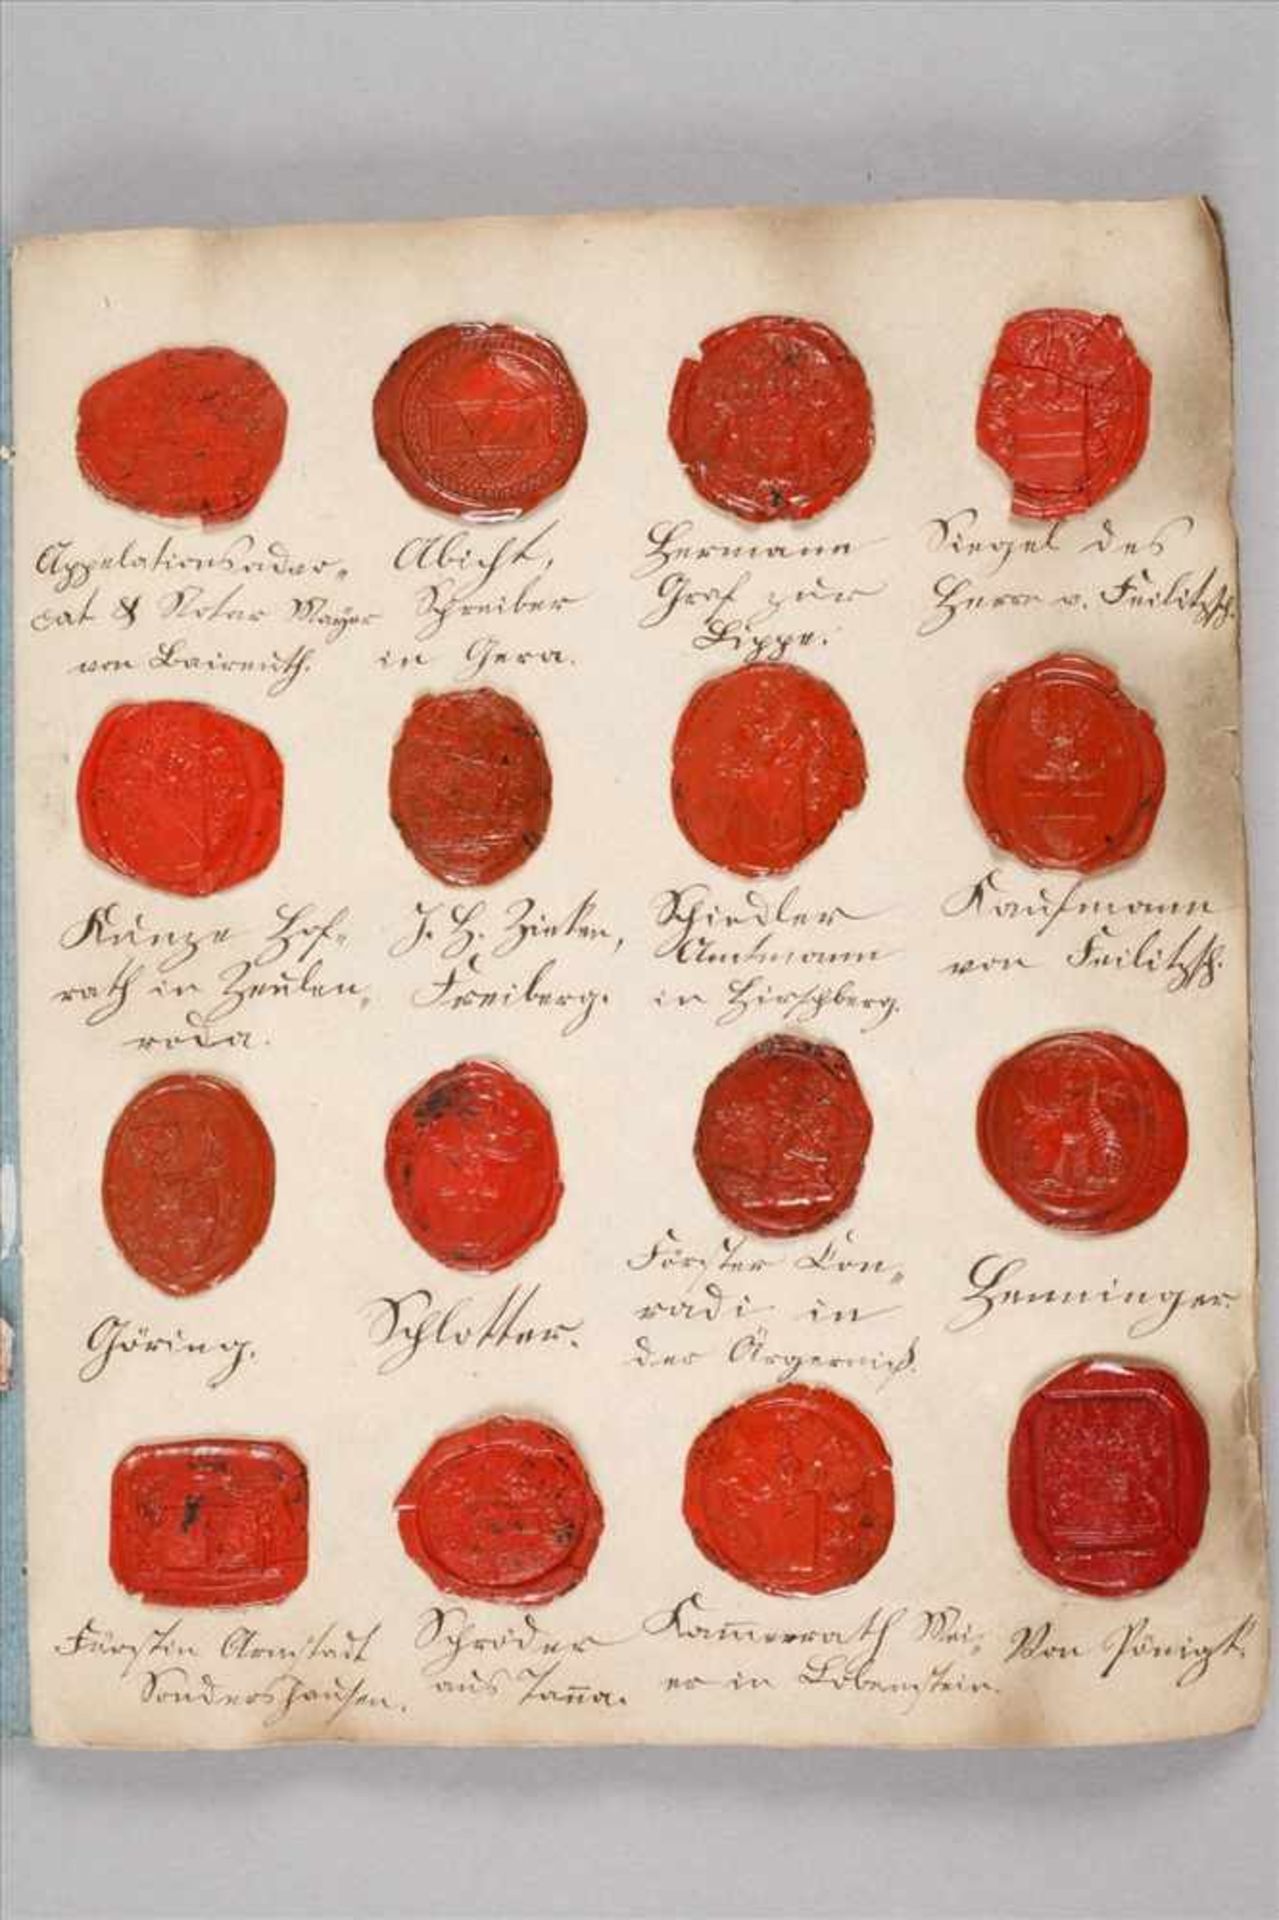 Appelationsadvo-
cat & Notar Mayer
von Baireuth.
Abicht,
Schreiber
in Gera.
Hermann
Graf zur
Lippe.
Siegel des
Herrn v. Feilitzsch.
Kunze Hof-
rath in Zeulen-
roda.
J. H. Zinken,
Freiberg.
Schiedler
Amtmann
in Hirschberg.
Kaufmann
von Feilitzsch.
Göring.
Schlotter.
Förster Con-
radi in
der Ärgerniß.
Henninger.
Fürstin Arnstadt
Sondershausen.
Schröder
aus Tanna.
Kam̅errath Mei-
er in Lobenstein.
Von